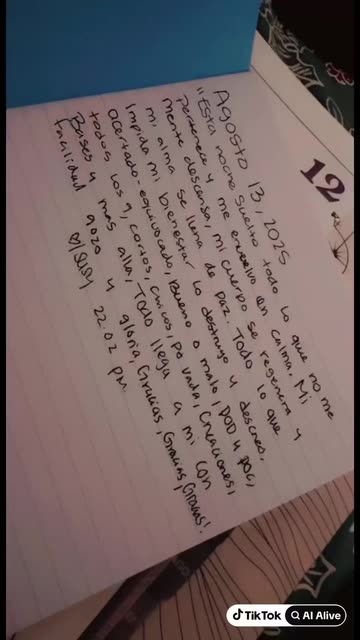 Agosto 13, 2025
"Esta noche suelto todo lo que no me
pertenece y me envuelvo en calma. Mi
mente descansa, mi cuerpo se regenera y
mi alma se llena de paz. Todo lo que
impida mi bienestar lo destruyo y descreo.
Acertado-equivocado, Bueno o malo, POD u POC,
todos los 9, cortos, chicos, po vada, Creaciones,
Bases y mas alla, Todo llega a mi con
Facilidad gozo y gloria, Gracias, Gracias, Gracias!
22.02 pm.
12
TikTok
AI Alive